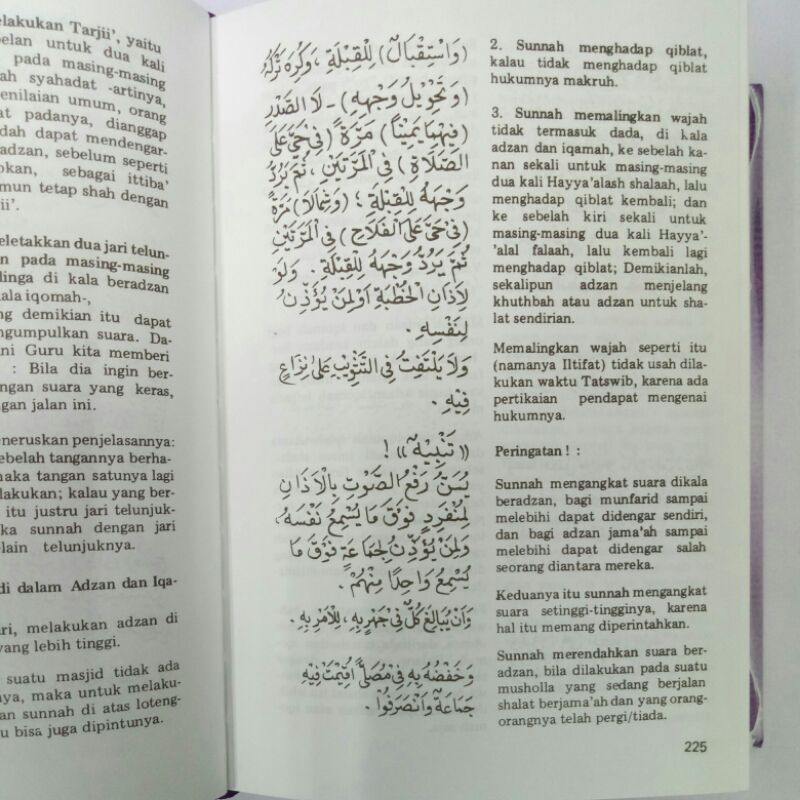 elakukan Tarjii’, yaitu
elan untuk dua kali
pada masing-masing
ah syahadat -artinya,
enilaian umum, orang
at padanya, dianggap
dah dapat mendengar-
adzan, sebelum seperti
okan, sebagai ittiba’
mun tetap shah dengan
ii’.
eletakkan dua jari telun-
n pada masing-masing
linga di kala beradzan
ala iqomah-,
ng demikian itu dapat
ngumpulkan suara. Da-
ni Guru kita memberi
: Bila dia ingin ber-
ngan suara yang keras,
gan jalan ini.
neruskan penjelasannya:
ebelah tangannya berha-
naka tangan satunya lagi
lakukan; kalau yang ber-
itu justru jari telunjuk-
ka sunnah dengan jari
elain telunjuknya.
di dalam Adzan dan Iqa-
ri, melakukan adzan di
yang lebih tinggi.
suatu masjid tidak ada
nya, maka untuk melaku-
an sunnah di atas loteng-
u bisa juga dipintunya.
(وَاسْتِقْبَالٌ) لِلْقِبْلَةِ ، وَكُرِهَ تَرْكُهُ
(وَتَحْوِيْلُ وَجْهِهِ) - لَا الصَّدْرِ
(فِيْهِمَا يَمِيْنًا) مَرَّةً (فِيْ حَيَّ عَلَى
الصَّلَاةِ) فِي الْمَرَّتَيْنِ ، ثُمَّ يَرُدُّ
وَجْهَهُ لِلْقِبْلَةِ ؛ (وَشِمَالًا) مَرَّةً
(فِيْ حَيَّ عَلَى الْفَلَاحِ) فِي الْمَرَّتَيْنِ
ثُمَّ يَرُدُّ وَجْهَهُ لِلْقِبْلَةِ . وَلَوْ
لِأَذَانِ الْخُطْبَةِ اَوْلِمَنْ يُؤَذِّنُ
لِنَفْسِهِ .
وَلَا يَلْتَفِتُ فِي التَّثْوِيْبِ عَلَى نِزَاعٍ
فِيْهِ .
«تَنْبِيْهٌ» !
يُسَنُّ رَفْعُ الصَّوْتِ بِالْاَذَانِ
لِمُنْفَرِدٍ فَوْقَ مَا يُسْمِعُ نَفْسَهُ ،
وَلِمَنْ يُؤَذِّنُ لِجَمَاعَةٍ فَوْقَ مَا
يُسْمِعُ وَاحِدًا مِنْهُمْ .
وَاَنْ يُبَالِغَ كُلٌّ فِيْ جَهْرٍ بِهِ ، لِلْاَمْرِ بِهِ .
وَخَفْضُهُ بِهِ فِيْ مُصَلًّى اُقِيْمَتْ فِيْهِ
جَمَاعَةٌ وَانْصَرَفُوْا .
2. Sunnah menghadap qiblat,
kalau tidak menghadap qiblat
hukumnya makruh.
3. Sunnah memalingkan wajah
tidak termasuk dada, di kala
adzan dan iqamah, ke sebelah ka-
nan sekali untuk masing-masing
dua kali Hayya’alash shalaah, lalu
menghadap qiblat kembali; dan
ke sebelah kiri sekali untuk
masing-masing dua kali Hayya’-
’alal falaah, lalu kembali lagi
menghadap qiblat; Demikianlah,
sekalipun adzan menjelang
khuthbah atau adzan untuk sha-
lat sendirian.
Memalingkan wajah seperti itu
(namanya Iltifat) tidak usah dila-
kukan waktu Tatswib, karena ada
pertikaian pendapat mengenai
hukumnya.
Peringatan ! :
Sunnah mengangkat suara dikala
beradzan, bagi munfarid sampai
melebihi dapat didengar sendiri,
dan bagi adzan jama’ah sampai
melebihi dapat didengar salah
seorang diantara mereka.
Keduanya itu sunnah mengangkat
suara setinggi-tingginya, karena
hal itu memang diperintahkan.
Sunnah merendahkan suara ber-
adzan, bila dilakukan pada suatu
musholla yang sedang berjalan
shalat berjama’ah dan yang orang-
orangnya telah pergi/tiada.
225